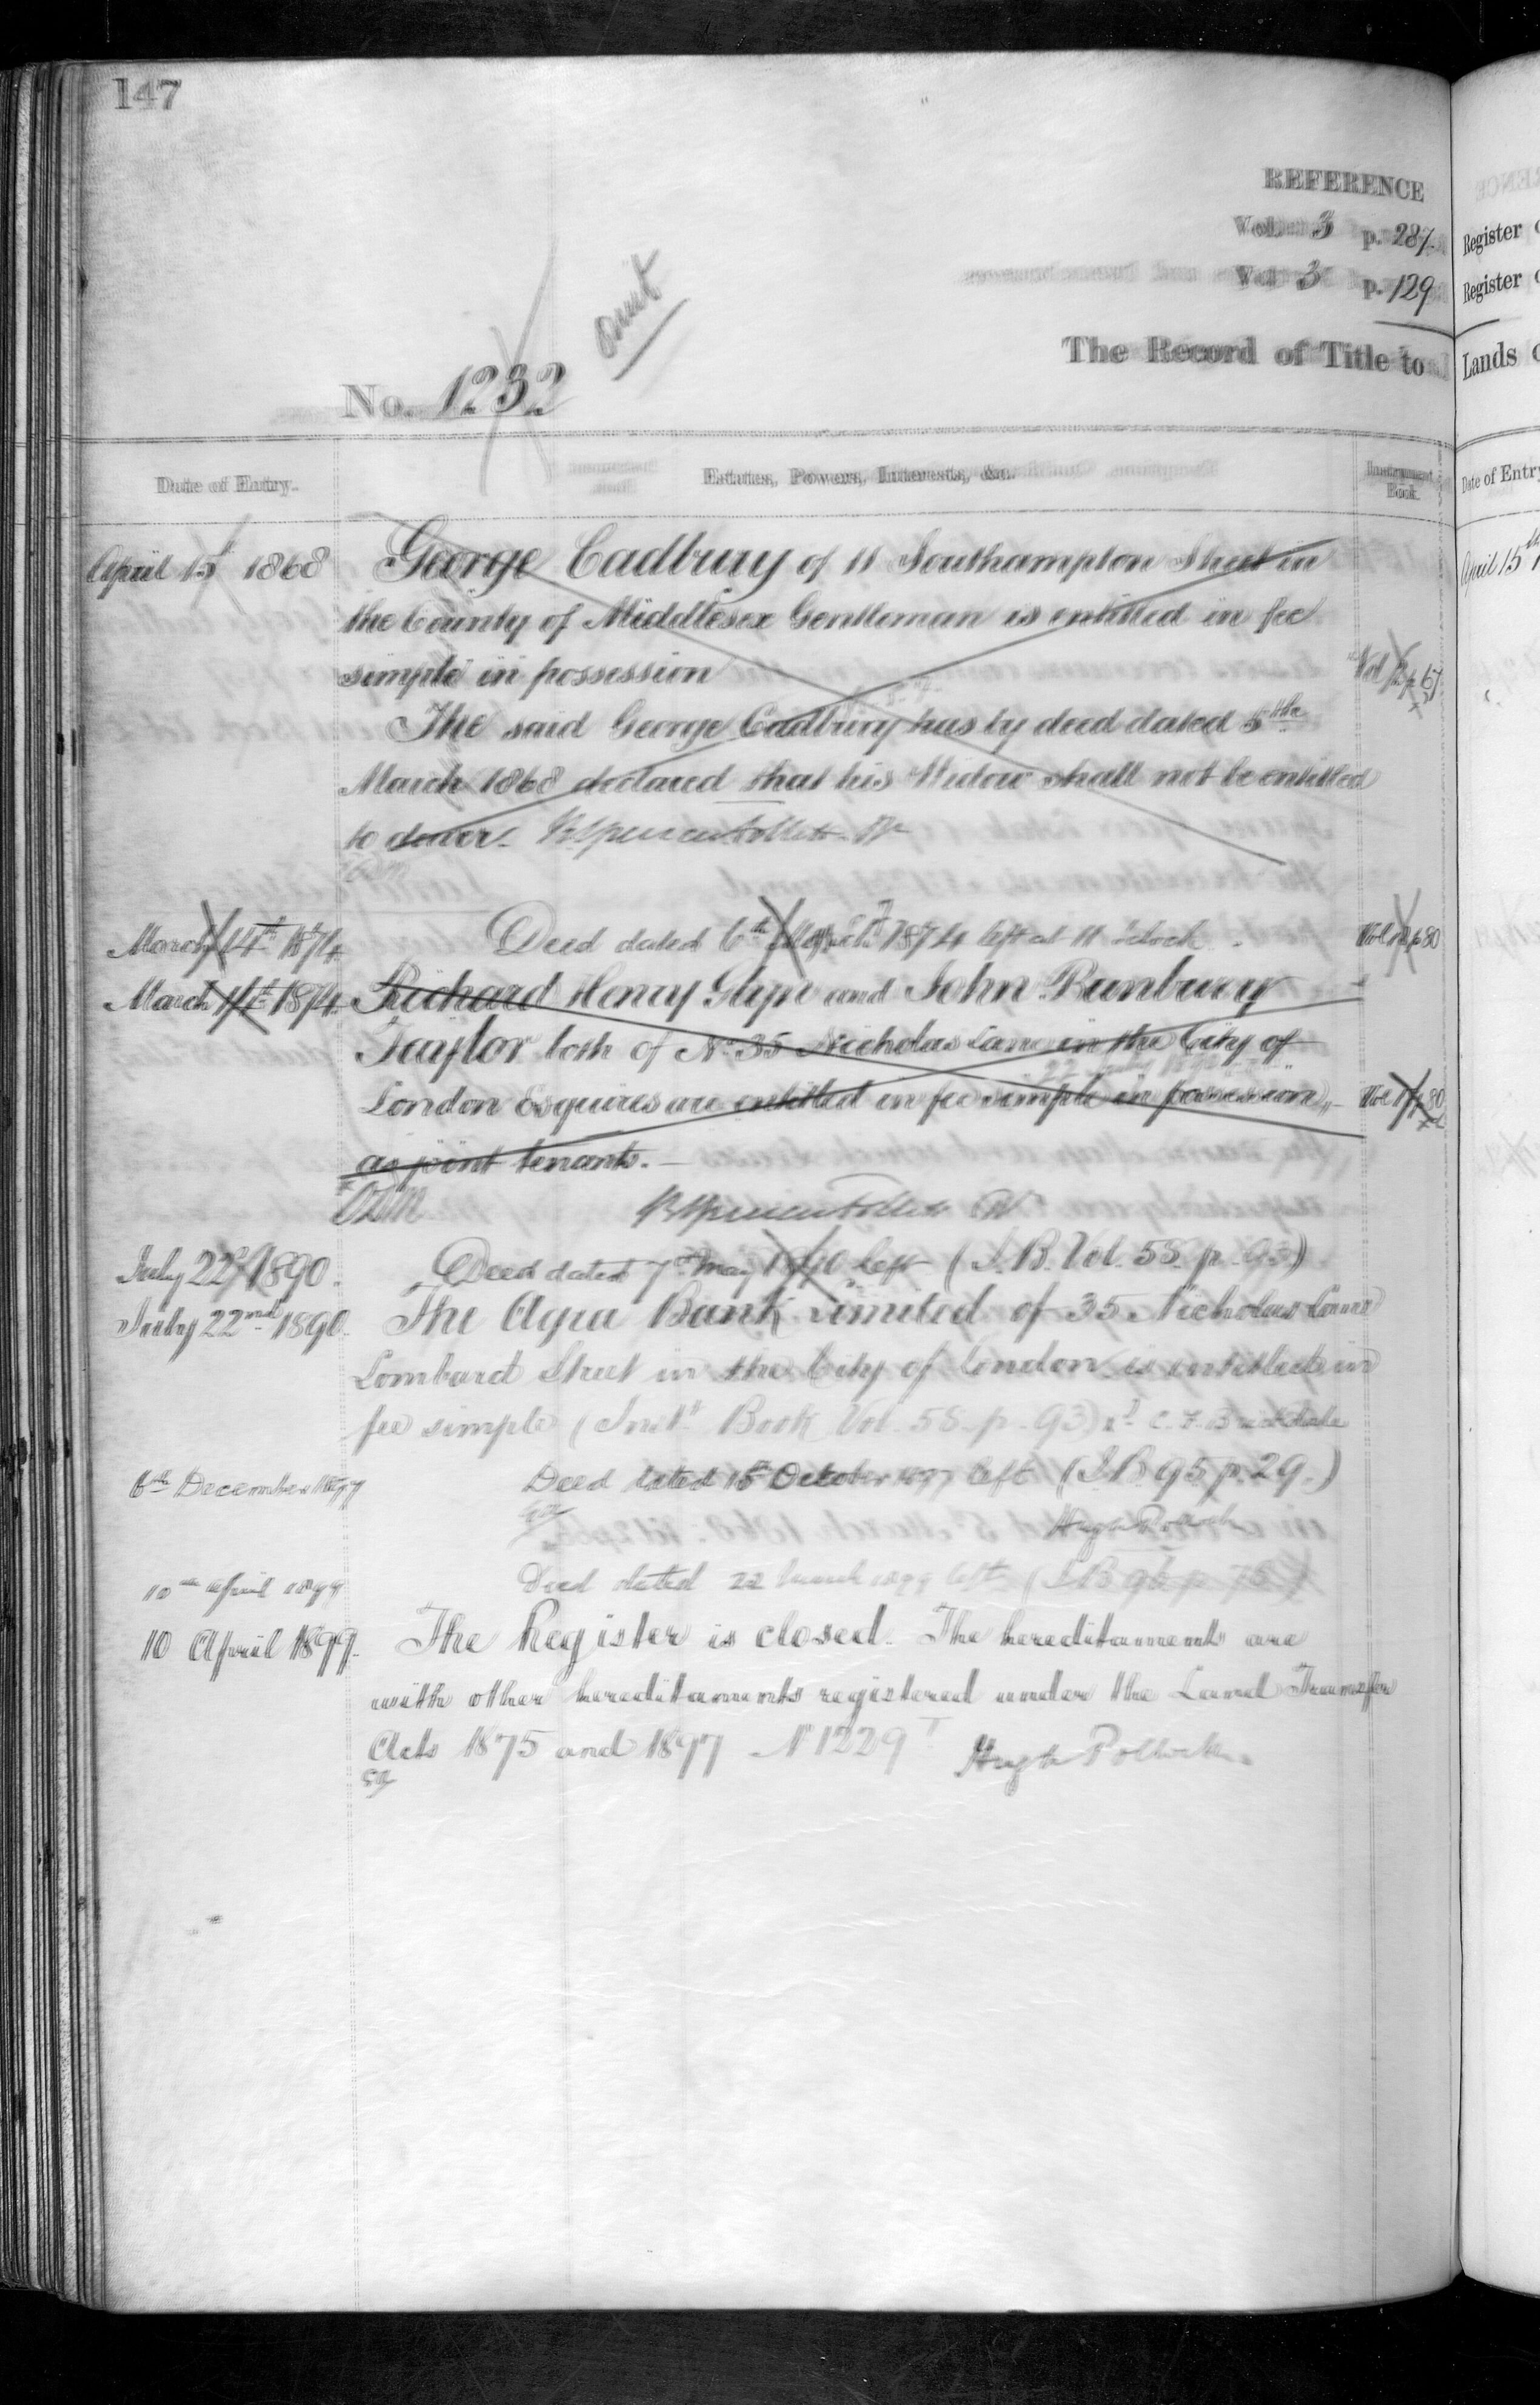 147
REFERENCE
Vol. 3 p. 287
Vol 3 p. 129
The Record of Title to
omit
No. 1232
Date of Entry.
Estates, Powers, Interests, &c.
Instrument Book.
April 15th 1868 George Cadbury of 11 Southampton Street in
the County of Middlesex Gentleman is entitled in fee
simple in possession
The said George Cadbury has by deed dated 5th
March 1868 declared that his Widow shall not be entitled
to dower.
March 14th 1874 Deed dated 6th March 1874 left at 11 o'clock
March 14th 1874 Richard Henry Glyn and John Bunbury
Taylor both of No. 35 Nicholas Lane in the City of
London Esquires are entitled in fee simple in possession
as joint tenants.
July 22nd 1890. Deed dated 7th May 1890 left (I.B. Vol. 58. p. 93)
July 22nd 1890. The Agra Bank Limited of 35 Nicholas Lane
Lombard Street in the City of London is entitled in
fee simple (Inst. Book Vol. 58. p. 93)
6th December 1897 Deed dated 15th October 1897 left (I.B 95 p. 29.)
Hugh Pollock
10th April 1899 Deed dated 22 March 1899 left
10 April 1899. The Register is closed. The hereditaments are
with other hereditaments registered under the Land Transfer
Acts 1875 and 1897 No 1229 Hugh Pollock
Register
Register
Lands
Date of Entry
April 15th